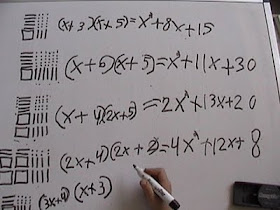 (x+3)(x+5)=x²+8x+15
(x+6)(x+5)=x²+11x+30
(x+4)(2x+5)=2x²+13x+20
(2x+4)(2x+2)=4x²+12x+8
(3x+4)(x+3)